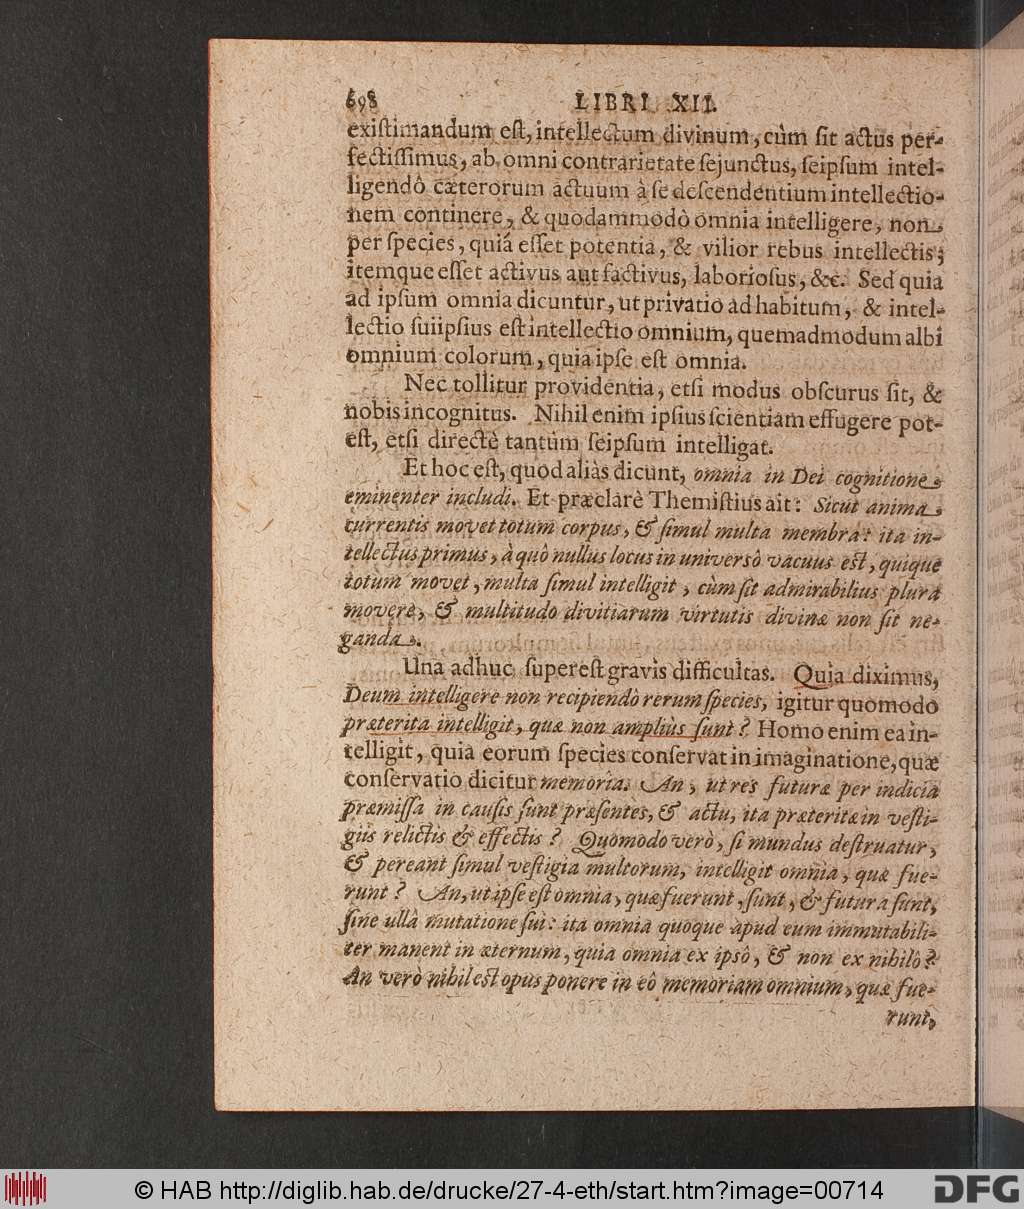 698 LIBRI XII.
existimandum est, intellectum divinum, cùm sit actus per-
fectissimus, ab omni contrarietate sejunctus, seipsum intel-
ligendô cæterorum actuum à se descendentium intellectio-
nem continere, & quodammodò omnia intelligere, non
per species, quiá esset potentia, & vilior rebus intellectis;
itemque esset activus aut factivus, laboriosus, &c. Sed quia
ad ipsum omnia dicuntur, ut privatio ad habitum, & intel-
lectio suiipsius est intellectio omnium, quemadmodum albi
omnium colorum, quia ipse est omnia.
Nec tollitur providentia, etsi modus obscurus sit, &
nobis incognitus. Nihil enim ipsius scientiam effugere pot-
est, etsi directè tantùm seipsum intelligat.
Et hoc est, quod aliàs dicunt, omnia in Dei cognitione
eminenter includi. Et præclarè Themistius ait: Sicut anima
currentis movet totum corpus, & simul multa membra: ita in-
tellectus primus, à quò nullus locus in universô vacuus est, quique
totum movet, multa simul intelligit, cùm sit admirabilius plura
movere, & multitudo divitiarum virtutis divinæ non sit ne-
ganda.
Una adhuc superest gravis difficultas. Quia diximus,
Deum intelligere non recipiendò rerum species, igitur quomodo
præterita intelligit, quæ non ampliùs sunt? Homo enim ea in-
telligit, quia eorum species conservat in imaginatione, quæ
conservatio dicitur memoria. An, ut res futuræ per indicia
præmissa in causis sunt præsentes, & actu, ita præteritæ in vesti-
giis relictis & effectis? Quomodo verò, si mundus destruatur,
& pereant simul vestigia multorum, intelligit omnia, quæ fue-
runt? An, ut ipse est omnia, quæ fuerunt, sunt, & futura sunt,
sine ullâ mutatione sui: ita omnia quoque apud eum immutabili-
ter manent in æternum, quia omnia ex ipsô, & non ex nihilô?
An verò nihil est opus ponere in eô memoriam omnium, quæ fue-
runt,
© HAB http://diglib.hab.de/drucke/27-4-eth/start.htm?image=00714
DFG